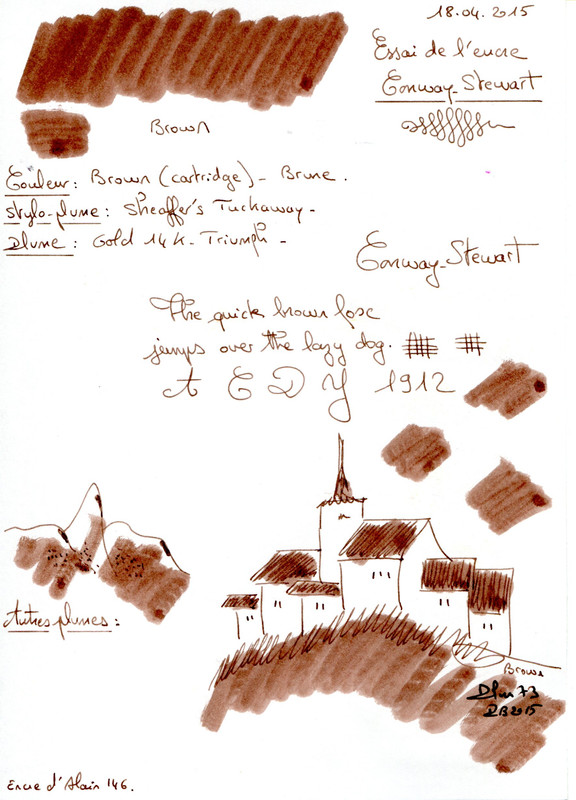 18.04.2015
Essai de l'encre
Conway-Stewart
Brown
Couleur : Brown (cartridge) - Brune.
Stylo-plume : Sheaffer's Tuckaway -
Plume : Gold 14 K - Triumph -
Conway-Stewart
The quick brown foxe
jumps over the lazy dog.
A C D Y 1912
Autres plumes :
Brown
2015
Encre d'Alain 146.